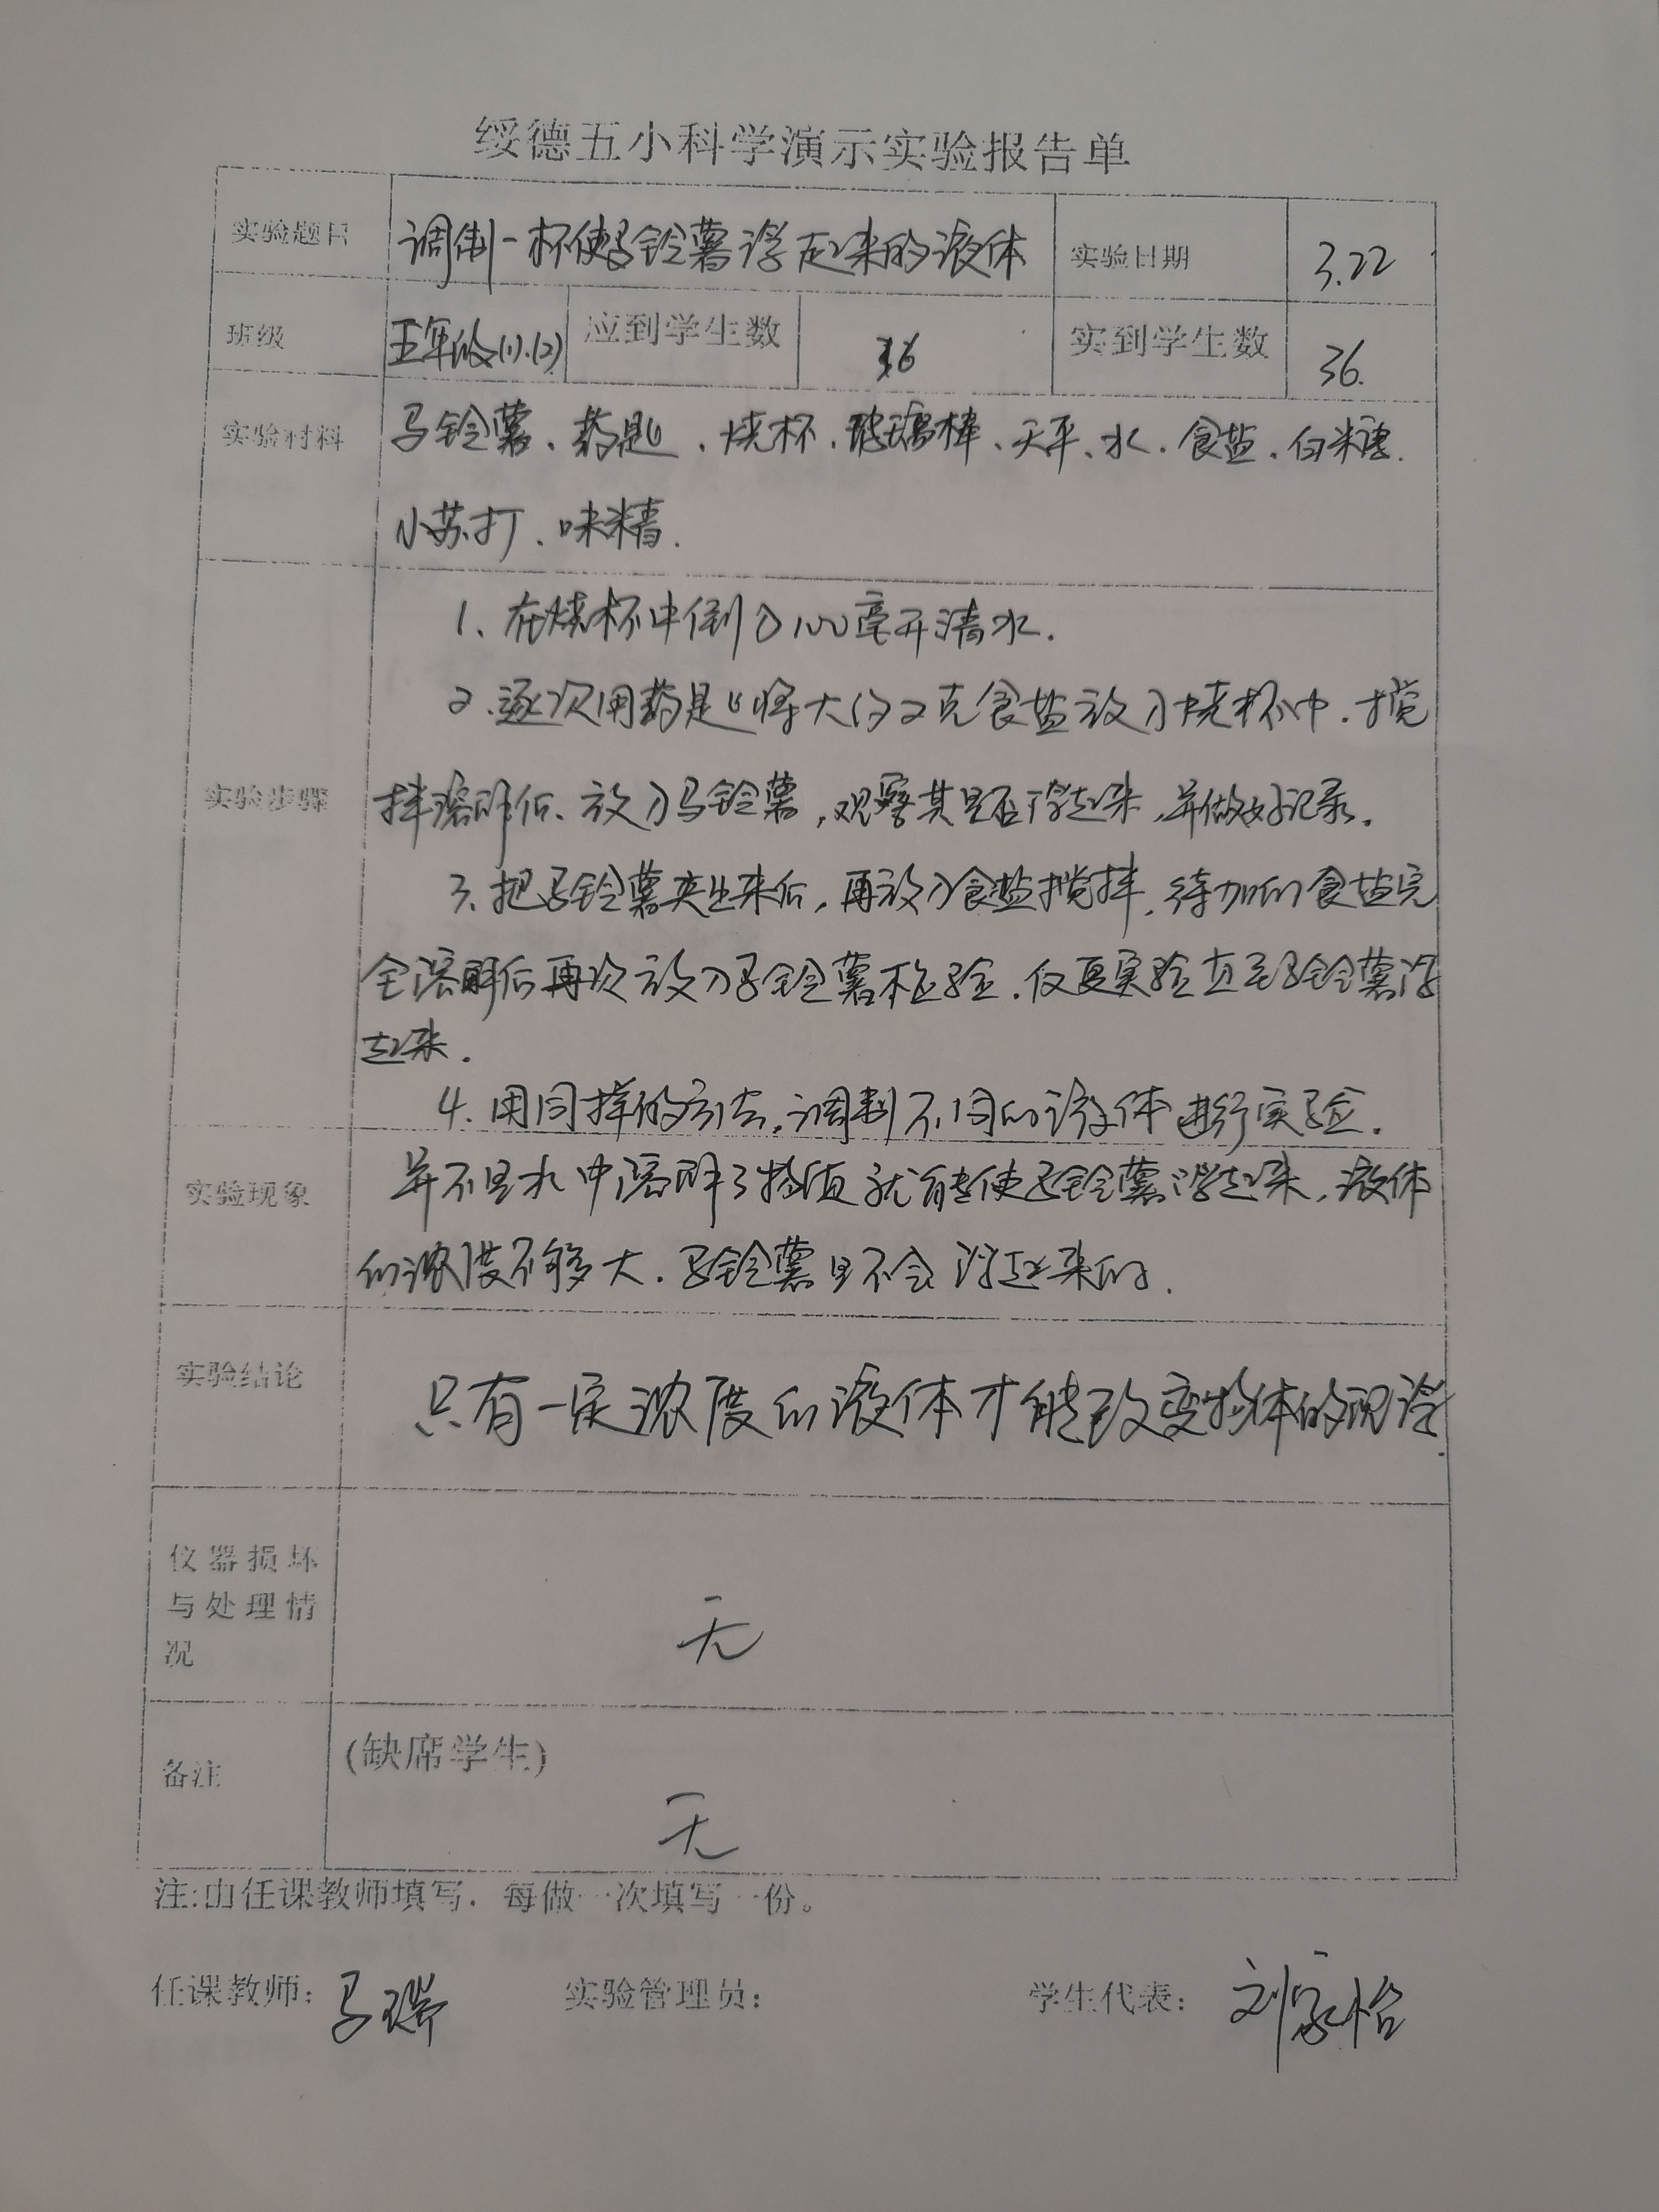 绥德五小科学演示实验报告单
实验题目 调制一杯使马铃薯浮起来的液体 实验日期 3.22
班级 五年级(1).(2) 应到学生数 36 实到学生数 36.
实验材料 马铃薯、药匙、烧杯、玻璃棒、天平、水、食盐、白米糖.
小苏打、味精.
1、在烧杯中倒入100毫升清水.
2、逐次用药匙将大约2克食盐放入烧杯中.搅
实验步骤 拌溶解后、放入马铃薯,观察其是否浮起来,并做好记录.
3、把马铃薯夹出来后,再放入食盐搅拌,待加的食盐完
全溶解后再次放入马铃薯检验.反复实验直至马铃薯浮
起来.
4.用同样的方法,调制不同的液体进行实验.
实验现象 并不是水中溶解了物质就能使马铃薯浮起来,液体
的浓度不够大.马铃薯是不会浮起来的.
实验结论 只有一定浓度的液体才能改变物体的沉浮.
仪器损坏
与处理情 无
况
备注 (缺席学生)
无
注:由任课教师填写,每做一次填写一份。
任课教师: 马瑞 实验管理员: 学生代表: 刘家怡